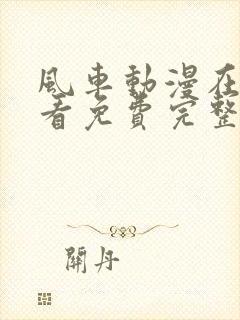 風車動漫在
看免費完整
開丹